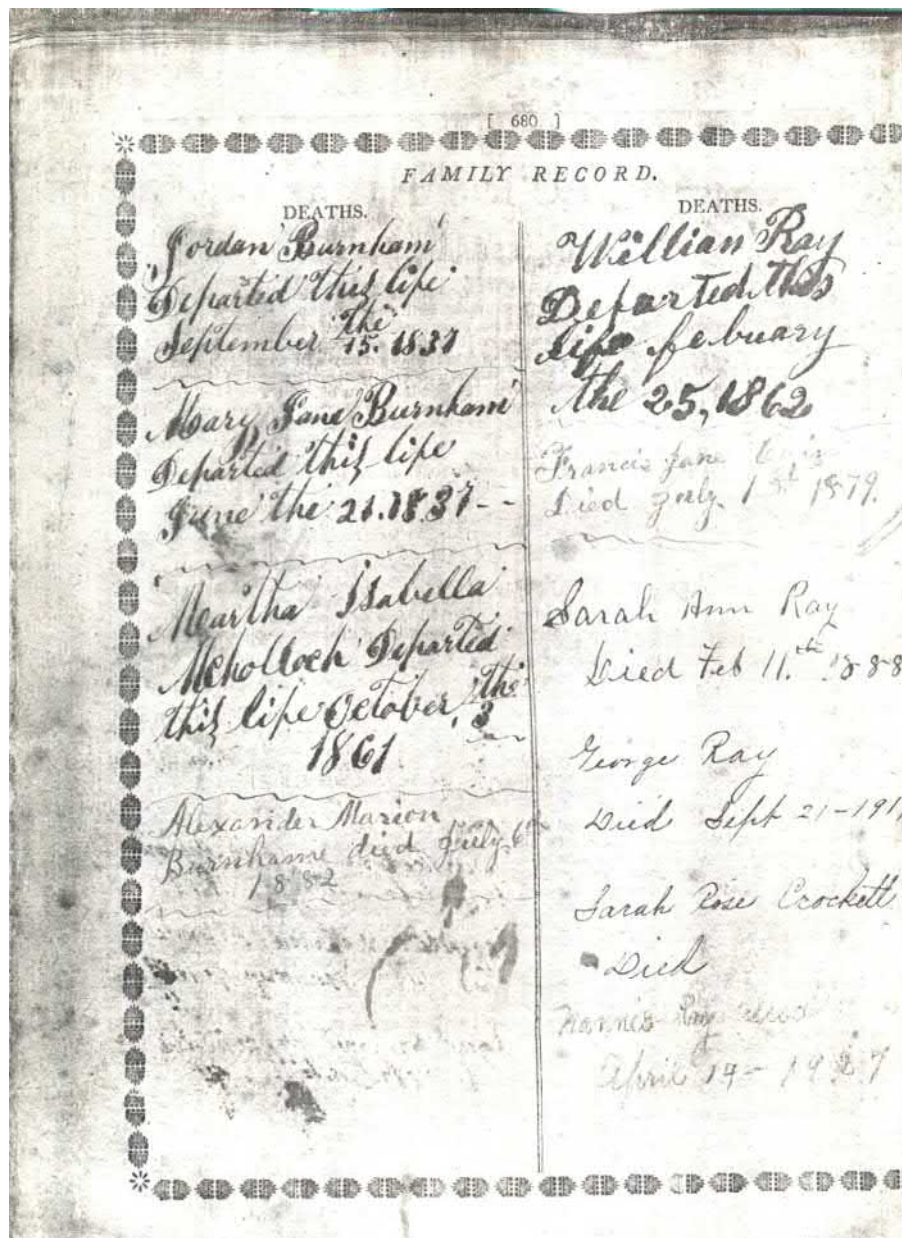 [ 680 ]
FAMILY RECORD.
DEATHS.
Jordan Burnham
Departed this life
September the
15. 1837
Mary Jane Burnham
Departed this life
June the 21. 1837 - -
Martha Isabella
Mcholloch Departed
this life October the
3
1861
Alexander Marion
Burnhame died July 6
1882
DEATHS.
Willian Ray
Departed this
life febuary
the 25, 1862
Francis Jane
Died July 1st 1879.
Sarah Ann Ray
Died Feb 11.th 1888
George Ray
Died Sept 21-191
Sarah Rose Crockett
Died
Nannie Ray
April 14 - 1927